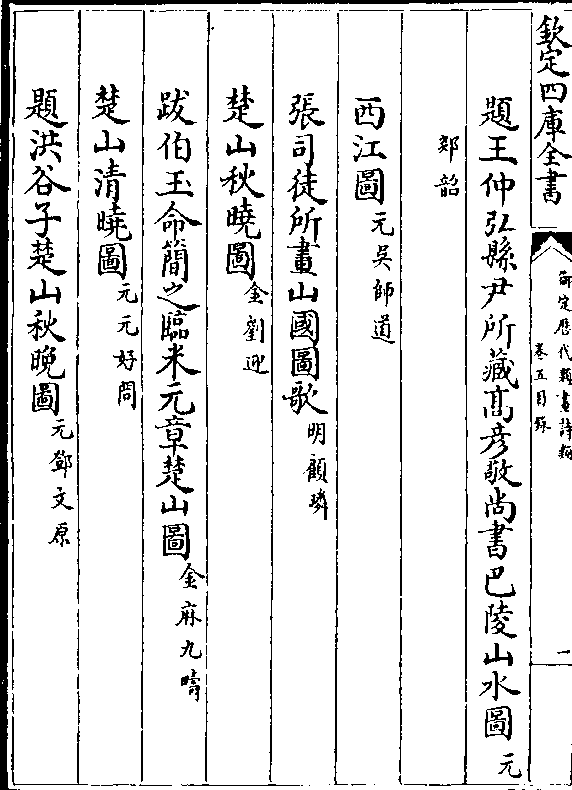 欽定四庫全書
御定歷代題畫詩類
卷五目錄
一
題王仲弘縣尹所藏髙彦敬尚書巴陵山水圖元
郯韶
西江圖元吳師道
張司徒所畫山國圖歌明顧璘
楚山秋曉圖金劉迎
跋伯玉命簡之臨米元章楚山圖金麻九疇
楚山清曉圖元元好問
題洪谷子楚山秋晚圖元鄧文原